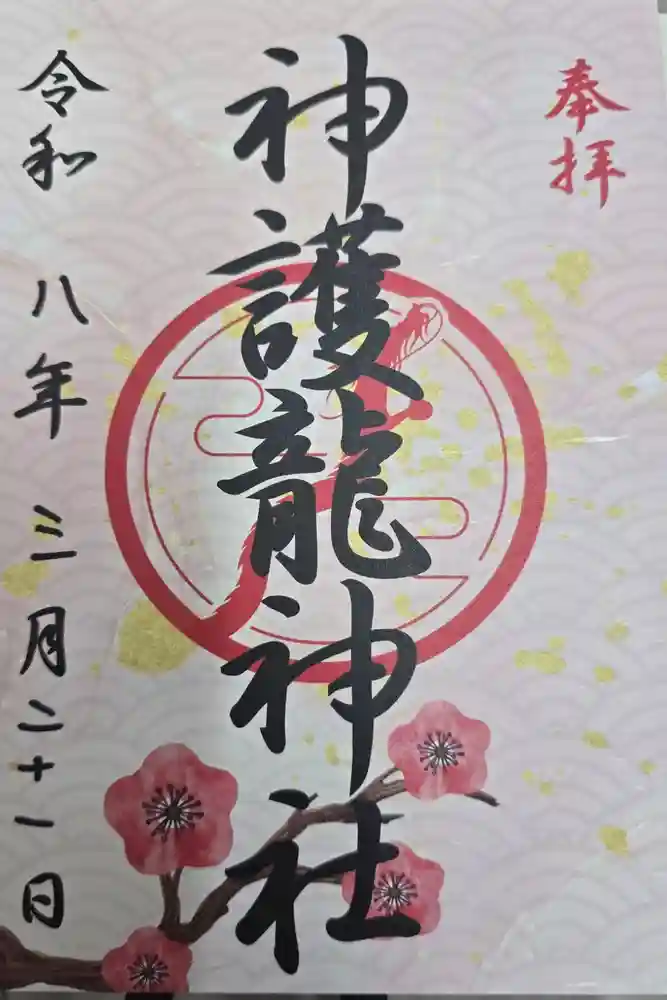 奉拝
神護龍神社
令和 八年 三月二十一日